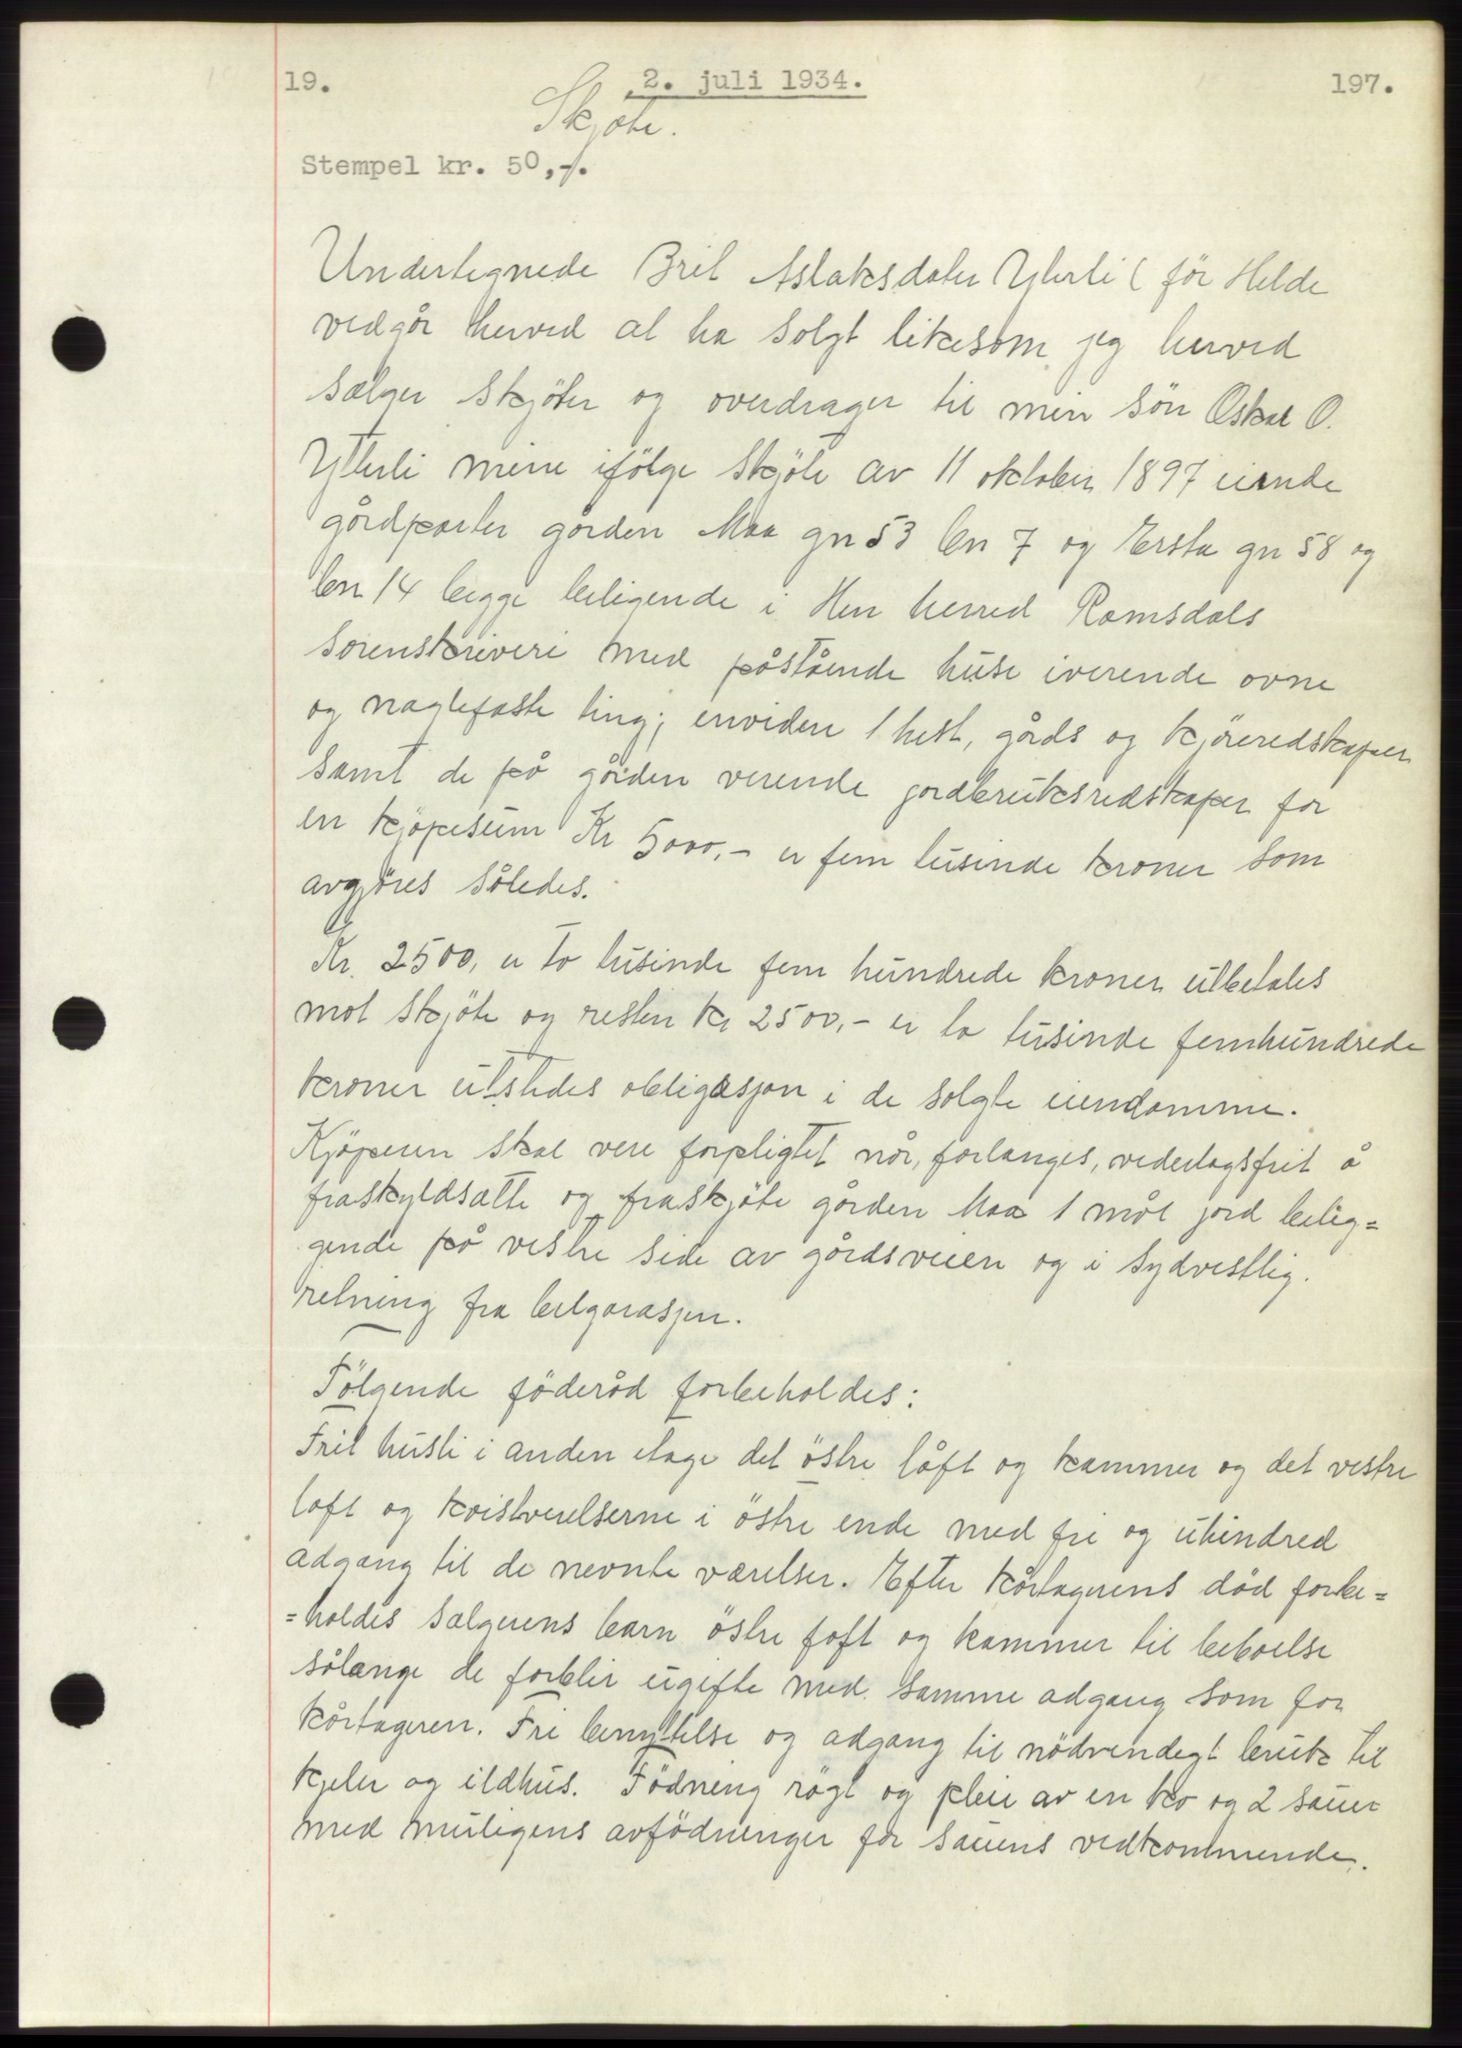 19. 2. juli 1934. 197.
Skjøte.
Stempel kr. 50,-/.
Undertegnede Brit Aslaksdater Yterli ( før Helde
vedgår herved at ha solgt likesom jeg herved
sælger skjöter og overdrager til min sön Oskar O.
Yterli mine ifölge skjöte av 11 oktober 1897 eiende
gårdparter gården Maa gn 53 bn 7 og Ersta gn 58 og
bn 14 begge beligende i Hen herred Romsdals
sorenskriveri med påstående huse iverende ovne
og naglefaste ting; enviden 1 hest, gårds og kjöreredskaper
samt de på gården verende jordbruksredskaper for
en kjöpesum Kr 5000,- er fem tusinde kroner som
avgjöres således.
Kr. 2500, er to tusinde fem hundrede kroner utbetales
mot skjöte og resten kr 2500,- er to tusinde femhundrede
kroner utstedes obligasjon i de solgte eiendomme.
Kjöperen skal vere forpligtet når, forlanges, vederlagsfrit å
fraskyldsætte og fraskjöte gården Maa 1 mål jord belig=
gende på vestre side av gårdsveien og i sydvestlig.
retning fra bilgarasjen.
Fölgende föderåd forbeholdes:
Frit husli i anden etage det östre låft og kammer og det vestre
loft og kvistverelserne i östre ende med fri og uhindred
adgang til de nevnte værelser. Efter kårtagerens död forbe=
=holdes sælgerens barn östre loft og kammer til beboelse
sålænge de forblir ugifte med samme adgang som for
kårtageren. Fri benyttelse og adgang til nödvendigt bruk til
kjeler og ildhus. Födning røgt og pleie av en ko og 2 sauer
med muligens avfödninger for sauens vedkommende.